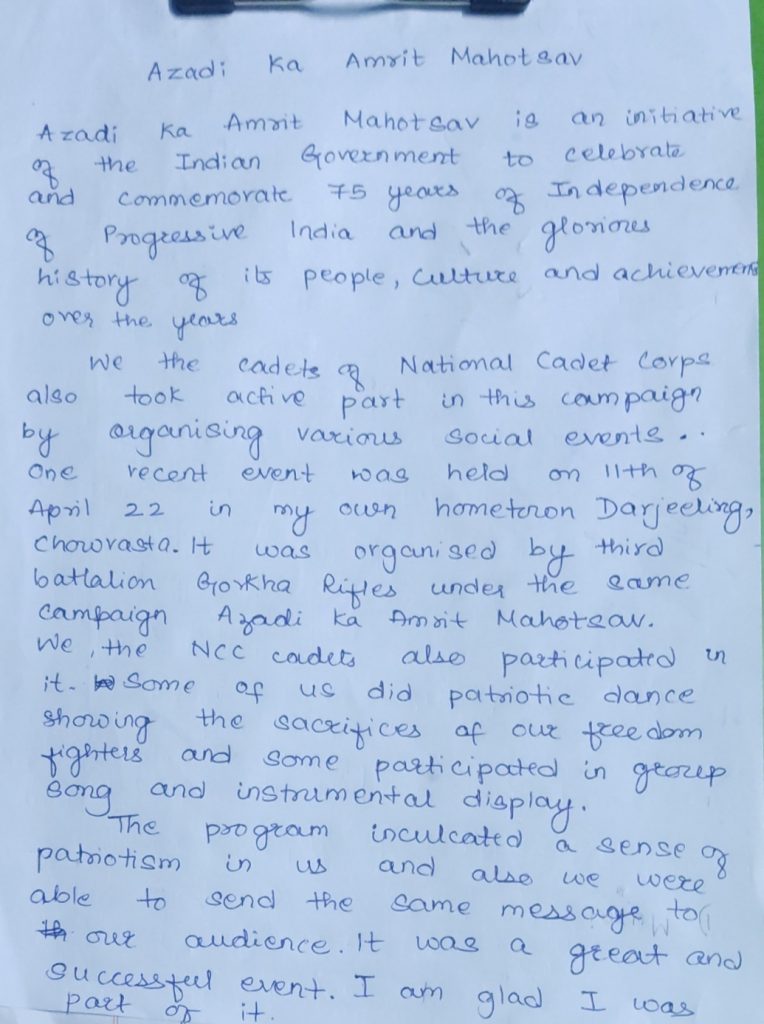 Azadi Ka Amrit Mahotsav
Azadi Ka Amrit Mahotsav is an initiative
of the Indian Government to celebrate
and commemorate 75 years of Independence
of Progressive India and the glorious
history of its people, culture and achievements
over the years
We the cadets of National Cadet Corps
also took active part in this campaign
by organising various social events..
One recent event was held on 11th of
April 22 in my own hometown Darjeeling,
Chowrasta. It was organised by third
battalion Gorkha Rifles under the same
campaign Azadi Ka Amrit Mahotsav.
We, the NCC cadets also participated in
it. Some of us did patriotic dance
showing the sacrifices of our freedom
fighters and some participated in group
song and instrumental display.
The program inculcated a sense of
patriotism in us and also we were
able to send the same message to
our audience. It was a great and
successful event. I am glad I was
part of it.